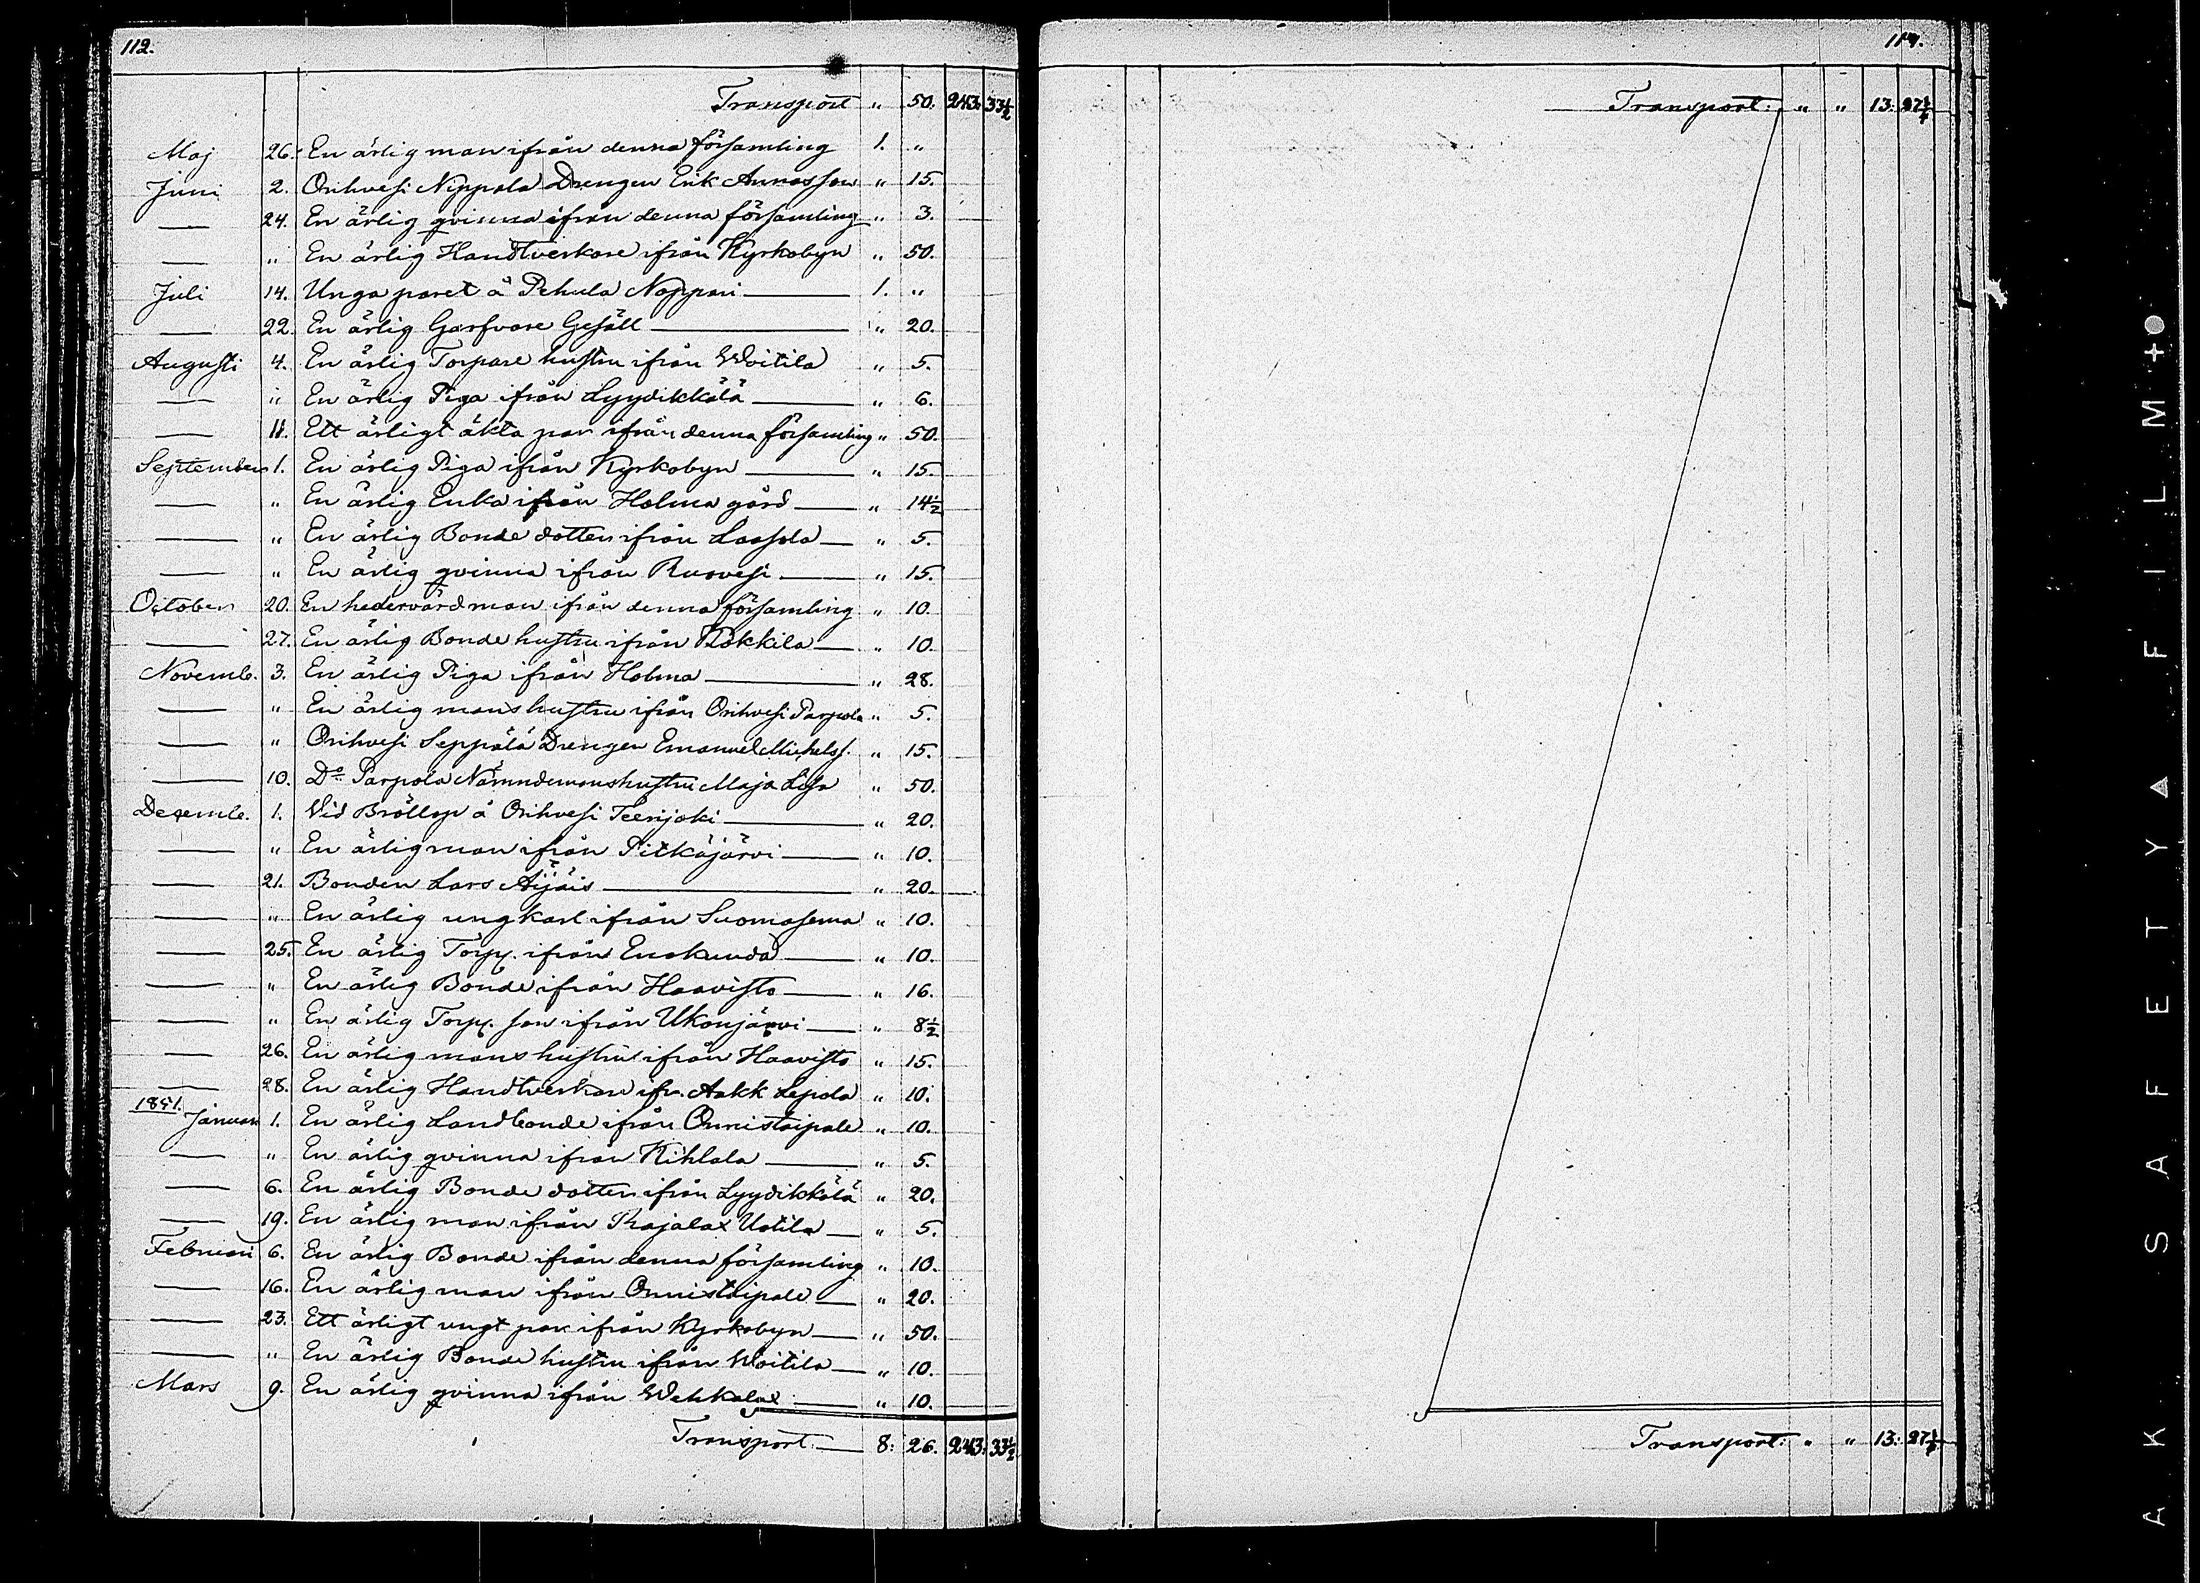 112.
Transport " 50. 243. 33½
Maj 26. En ärlig man ifrån denna församling 1. "
Juni 2. Orihvesi Nippala Drengen Erik Annasson " 15.
— 24. En ärlig qvinna ifrån denna församling " 3.
— " En ärlig Handtverkare ifrån Kyrkobyn " 50.
Juli 14. Unga paret å Pehula Nappari — 1. "
— 22. En ärlig Garfvare Gesäll — " 20.
Augusti 4. En ärlig Torpare hustru ifrån Woitila " 5.
— " En ärlig Piga ifrån Lyydikkälä — " 6.
— 11. Ett ärligt äkta par ifrån denna församling " 50.
September 1. En ärlig Piga ifrån Kyrkobyn — " 15.
— " En ärlig Enka ifrån Holma gård — " 14½
— " En ärlig Bonde dotter ifrån Laasola — " 5.
— " En ärlig qvinna ifrån Ruovesi — " 15.
October 20. En hedervärd man ifrån denna församling " 10.
— 27. En ärlig Bonde hustru ifrån — " 10.
Novemb. 3. En ärlig Piga ifrån Holma — " 28.
— " En ärlig mans hustru ifrån Orihvesi Parpola " 5.
— " Orihvesi Seppälä Drengen Emanuel Michelss. " 15.
— 10. Do Parpola Nämndemans hustru Maja Lisa " 50.
Decemb. 1. Vid Bröllop å Orihvesi Teerijoki — " 20.
— " En ärlig man ifrån Pitkäjärvi — " 10.
— 21. Bonden Lars Äijäis — " 20.
— " En ärlig ungkarl ifrån Suomasema " 10.
— 25. En ärlig Torp. ifrån Enokunda — " 10.
— " En ärlig Bonde ifrån Haavisto — " 16.
— " En ärlig Torp. son ifrån Ukonjärvi — " 8½
— 26. En ärlig mans hustru ifrån Haavisto " 15.
— 28. En ärlig Handtverkare ifr. Aakk Lepola " 10.
1851.
Januari 1. En ärlig Landbonde ifrån Onnistaipale " 10.
— " En ärlig qvinna ifrån Kihlala — " 5.
— 6. En ärlig Bonde dotter ifrån Lyydikkälä " 20.
— 19. En ärlig man ifrån Rajalax Uotila — " 5.
Februari 6. En ärlig Bonde ifrån denna församling " 10.
— 16. En ärlig man ifrån Onnistaipale — " 20.
— 23. Ett ärligt ungt par ifrån Kyrkobyn — " 50.
— " En ärlig Bonde hustru ifrån Woitila — " 10.
Mars 9. En ärlig qvinna ifrån Wehkalax — " 10.
Transport. — 8. 26. 243. 33½
Transport: " " 13. 27¼
Transport: " " 13. 27¼
AK SAFETY ▲ FILM +●